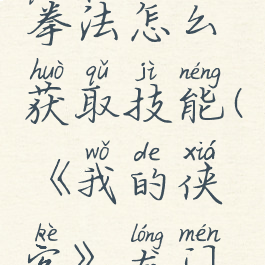 拳法怎么
huò qǔ jì néng
获取技能(
wǒ de xiá
《我的侠
kè lóng mén
客》龙门